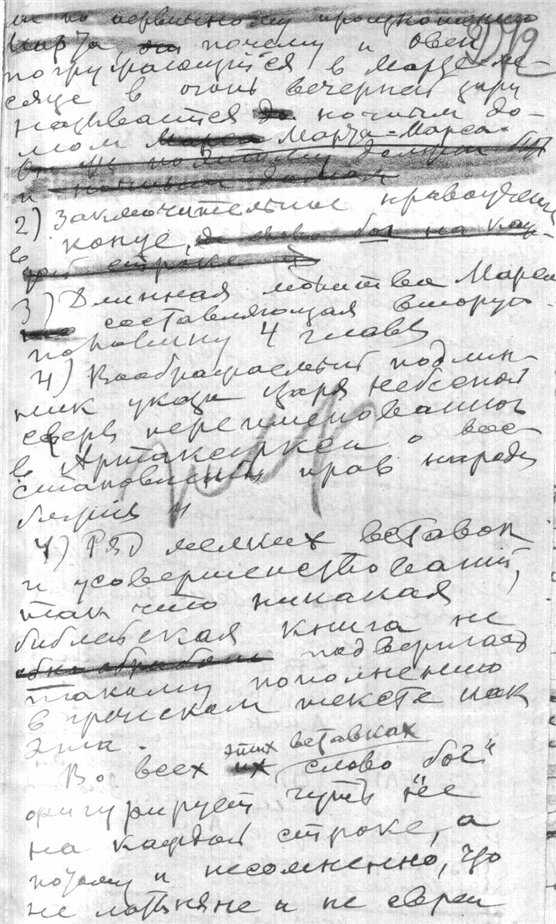 по первичному произношению
Марта, почему и овен
погружающийся в марте ме-
сяце в огонь вечерней зари
называется ночным до-
мом Марта-Марса.
и ночным домом
2) Заключительное нравоучение
в конце,
3) Длинная молитва Марса
составляющая вторую
половину 4 главы
4) Воображаемый подлин-
ник указа царя небесной
сферы переименованного
в Артаксеркса о вос-
становлении прав народа
4) Ряд мелких вставок
и усовершенствований,
так что никакая
библейская книга не
подверглась
такому пополнению
в греческом тексте как
эта.
Во всех этих вставках слово "бог"
фигурирует чуть не
на каждой строке, а
потому и несомненно, что
не латиняне и не евреи